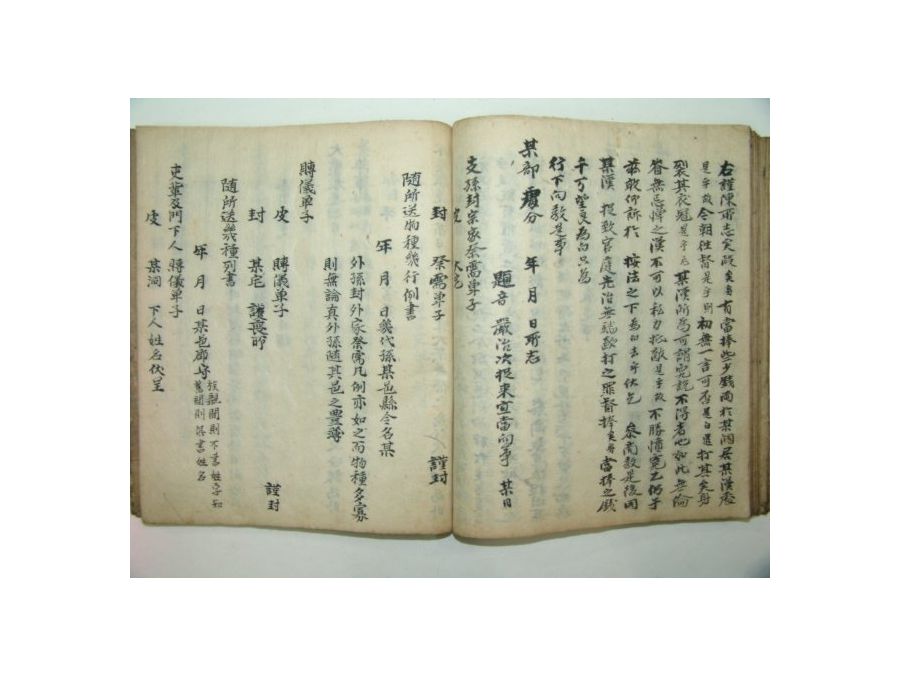 右謹陳所志矣段矣身有當捧些少錢兩於某洞居某漢處
是乎故今朝往督是乎則初無一言可否是白遣打其矣身
裂其衣冠是乎乃某漢所爲可謂究說不得者也如此無倫
無忌憚之漢不可以私力抵敵是乎故不勝憤寃
敢仰訴於 按法之下爲白去乎伏乞 參商敎是後同
某漢 捉致官庭先治無端毆打之罪督捧矣身當捧之錢
千万望良爲白只爲
行下向敎是事
某部 分 年 月 日所志
題音 嚴治次捉來宜當向事 某日
支孫封宗家祭需單子
封 祭需單子 謹封
隨所送物種幾行例書
年 月 日幾代孫某邑縣令名某
外孫封外家祭需凡例亦如之而物種多寡
則無論眞外孫隨其邑之豊薄
賻儀單子
皮 賻儀單子
封 某宅 護喪所 謹封
隨所送幾種列書
年 月 日某邑 守
族親間則不書姓字如
舊間則具書姓名
吏輩及門下人賻儀單子
皮 某洞 下人姓名伏呈